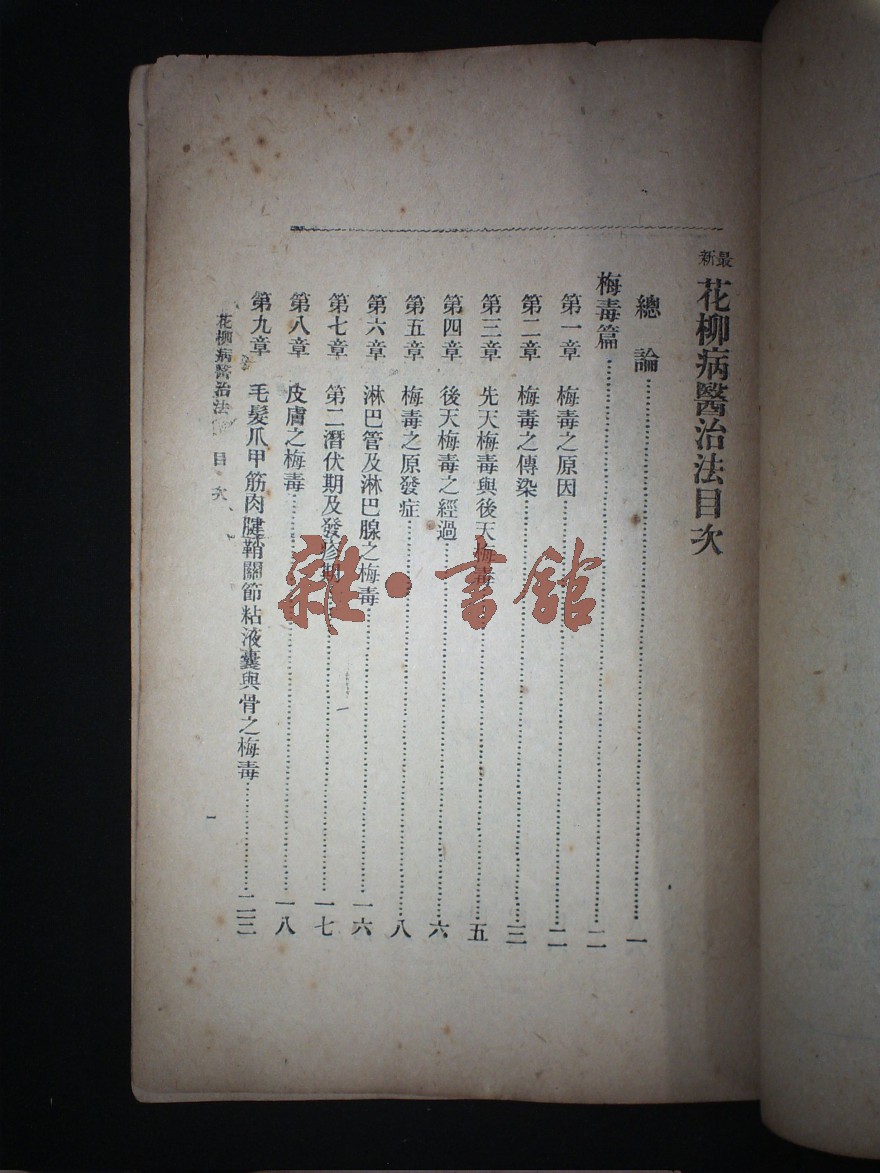 最新花柳病醫治法目次
總論……一
梅毒篇……二
第一章 梅毒之原因……二
第二章 梅毒之傳染……三
第三章 先天梅毒與後天梅毒……五
第四章 後天梅毒之經過……六
第五章 梅毒之原發症……八
第六章 淋巴管及淋巴腺之梅毒……一六
第七章 第二潛伏期及發疹期……一七
第八章 皮膚之梅毒……一八
第九章 毛髮爪甲筋肉腱鞘關節粘液囊與骨之梅毒……二三
花柳病醫治法 目次 一
雜·書館